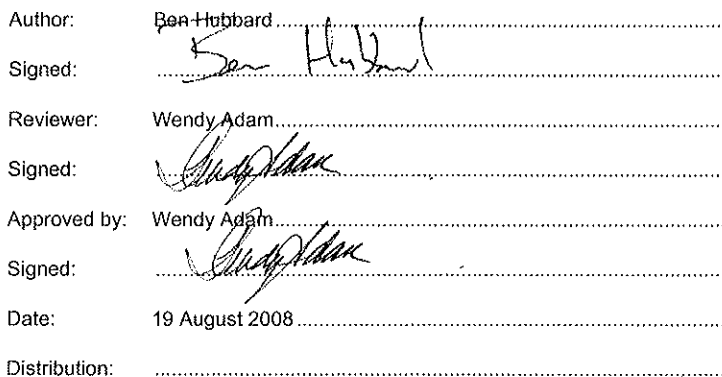 Author: Ben Hubbard
Signed: Ben Hubbard
Reviewer: Wendy Adam
Signed: Wendy Adam
Approved by: Wendy Adam
Signed: Wendy Adam
Date: 19 August 2008
Distribution: